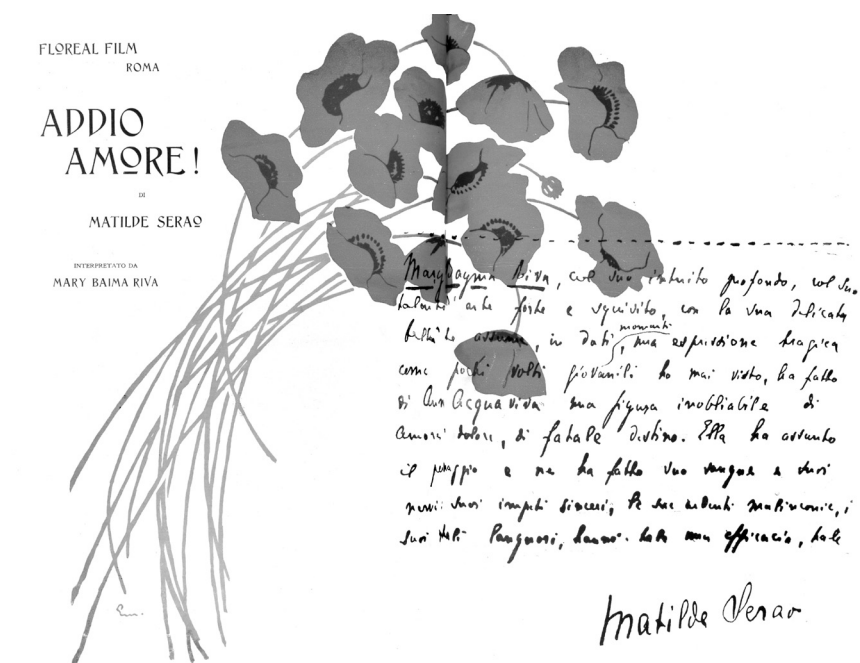 FLOREAL FILM
ROMA
ADDIO
AMORE!
DI
MATILDE SERAO
INTERPRETATO DA
MARY BAIMA RIVA
Mary Bayma Riva, col suo intuito profondo, col suo
forte e squisito, con la sua delicata
assume, in dati momenti, una espressione tragica
come pochi volti giovanili ho mai visto, ha fatto
di Acquaviva una figura inobliabile di
dolore, di fatale destino. Ella ha assunto
il e ne ha fatto suo sangue e suoi
nervi: suoi impeti sinceri, le sue ardenti malinconie, i
suoi languori, hanno una efficacia, tale
Matilde Serao